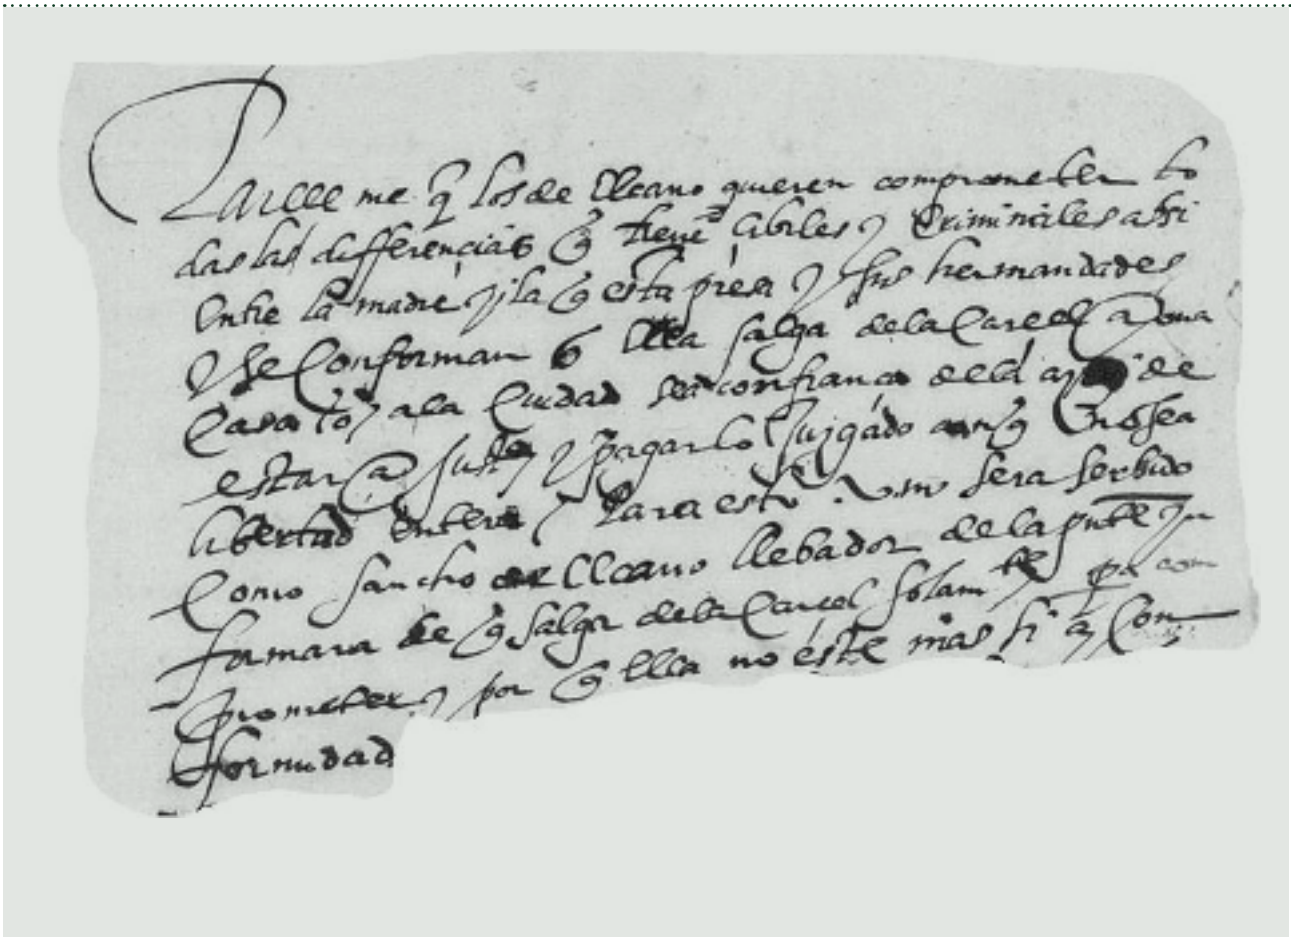 Parece me q los de llano quieren comprometer to
das las differencias q tiene cibiles y criminales assi
entre la madre y la q esta presa y sus hermandades
y se conforman q ella salga de la carcel a una
casa to y a la ciudad confiança de la de
estar a justª y pagar lo Juzgado no sea
libertad entera y Para esto v m sera serbido
como sancho de llano llebador de la pnte yn
formara de q salga de la carcel solamte pa com
prometer y por q ella no éste mas si ay con
formidad